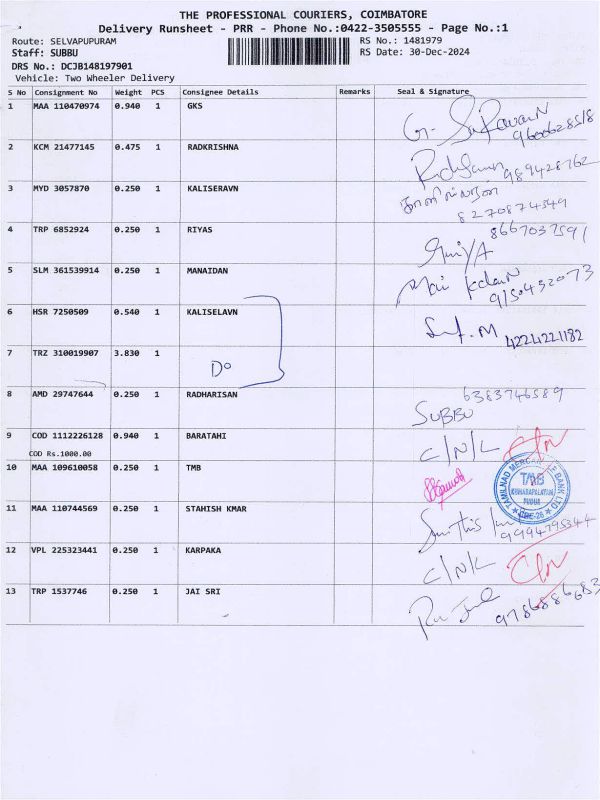 THE PROFESSIONAL COURIERS, COIMBATORE
Delivery Runsheet - PRR - Phone No.:0422-3505555 - Page No.:1
Route: SELVAPUPURAM RS No.: 1481979
Staff: SUBBU RS Date: 30-Dec-2024
DRS No.: DCJB148197901
Vehicle: Two Wheeler Delivery
S No Consignment No Weight PCS Consignee Details Remarks Seal & Signature
1 MAA 110470974 0.940 1 GKS
2 KCM 21477145 0.475 1 RADKRISHNA
3 MYD 3057870 0.250 1 KALISERAVN
8270874549
4 TRP 6852924 0.250 1 RIYAS
8667037591
5 SLM 361539914 0.250 1 MANAIDAN
6 HSR 7250509 0.540 1 KALISELAVN
4224221182
7 TRZ 310019907 3.830 1
Do
8 AMD 29747644 0.250 1 RADHARISAN
6383746589
SUBBU
9 COD 1112226128 0.940 1 BARATAHI
C/N/L
COD Rs.1000.00
10 MAA 109610058 0.250 1 TMB
TMB
11 MAA 110744569 0.250 1 STAHISH KMAR
9994795344
12 VPL 225323441 0.250 1 KARPAKA
C/N/L
13 TRP 1537746 0.250 1 JAI SRI
9786886683